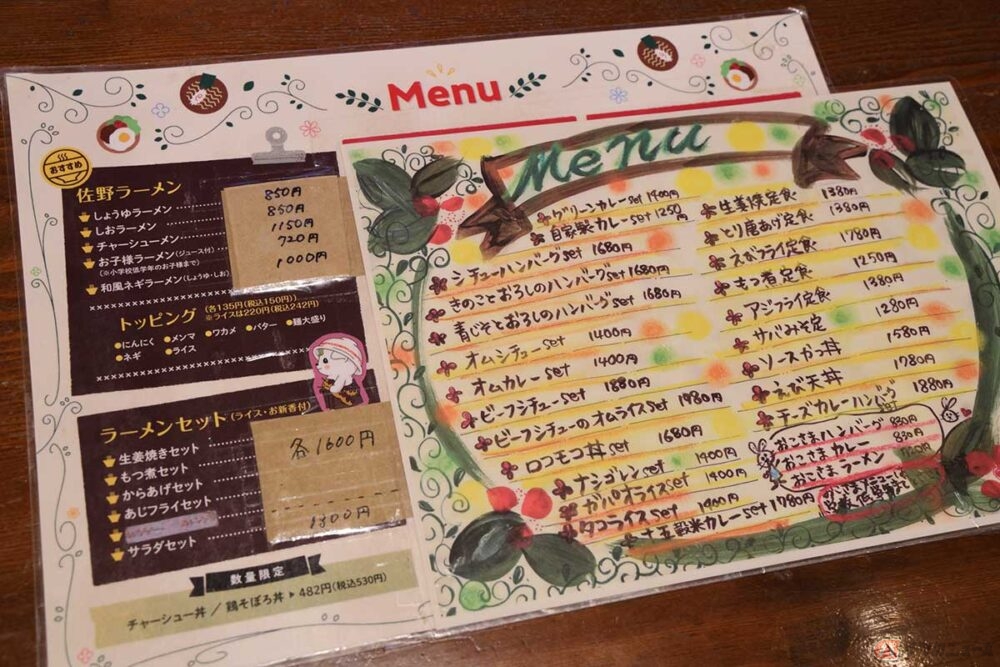 Menu
おすすめ
佐野ラーメン
しょうゆラーメン 850円
しおラーメン 850円
チャーシューメン 1150円
お子様ラーメン(ジュース付) 720円
(※小学校低学年のお子様まで)
和風ネギラーメン(しょうゆ・しお) 1000円
トッピング (各135円(税込150円))
※ライスは220円(税込242円)
●にんにく ●メンマ ●ワカメ ●バター ●麺大盛り
●ネギ ●ライス
ラーメンセット(ライス・お新香付)
各1600円
生姜焼きセット
もつ煮セット
からあげセット
あじフライセット
サラダセット 1300円
数量限定
チャーシュー丼 / 鶏そぼろ丼 ▶ 482円(税込530円)
Menu
グリーンカレーset 1400円
自家製カレーset 1250円
シチューハンバーグset 1680円
きのことおろしのハンバーグset 1680円
青じそとおろしのハンバーグset 1680円
オムシチューset 1400円
オムカレーset 1400円
ビーフシチューset 1880円
ビーフシチューのオムライスset 1980円
ロコモコ丼set 1680円
ナシゴレンset 1400円
ガパオライスset 1400円
タコライスset 1400円
十五穀米カレーset 1780円
生姜焼定食 1380円
とり唐あげ定食 1380円
えびフライ定食 1780円
もつ煮定食 1250円
アジフライ定食 1380円
サバみそ定 1280円
ソースかつ丼 1580円
えび天丼 1780円
チーズカレーハンバーグset 1880円
おこさまハンバーグ 830円
おこさまカレー 830円
おこさまラーメン